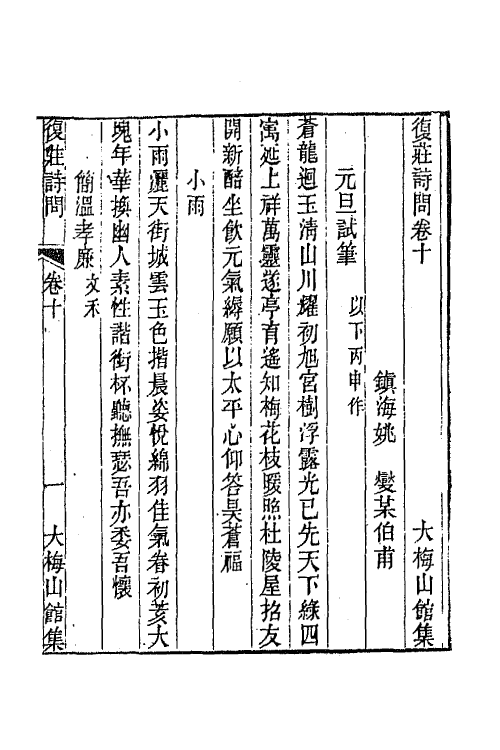 復莊詩問卷十　　大梅山館集
鎮海姚　燮某伯甫
元旦試筆　以下丙申作
蒼龍迴玉清山川燿初旭宮樹浮露光已先天下綠四
寓延上祥萬靈遂亭育遙知梅花枝暖照杜陵屋招友
開新醅坐飲元氣縟願以太平心仰答昊蒼福
小雨
小雨灑天街城雲玉色揩晨姿悅綿羽佳氣春初荄大
塊年華換幽人素性諧銜杯聽撫瑟吾亦委吾懷
簡溫孝廉文禾
復莊詩問　卷十　一　大梅山館集